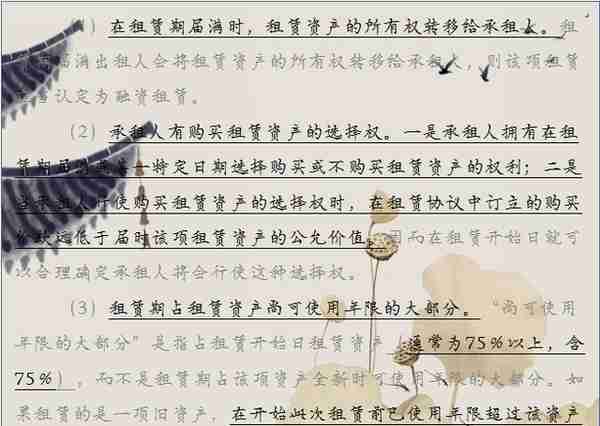 1）在租赁期届满时，租赁资产的所有权转移给承租人。租
届满出租人会将租赁资产的所有权转移给承租人，则该项租赁
认定为融资租赁。
（2）承租人有购买租赁资产的选择权。一是承租人拥有在租
赁期届满或某一特定日期选择购买或不购买租赁资产的权利；二是
当承租人行使购买租赁资产的选择权时，在租赁协议中订立的购买
价款远低于届时该项租赁资产的公允价值，因而在租赁开始日就可
以合理确定承租人将会行使这种选择权。
（3）租赁期占租赁资产尚可使用年限的大部分。“尚可使用
年限的大部分”是指占租赁开始日租赁资产 通常为75%以上，含
75%），而不是租赁期占该项资产全新时可使用年限的大部分。如
果租赁的是一项旧资产，在开始此次租赁前已使用年限超过该资产